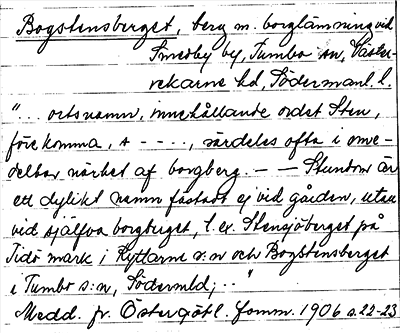 Bogstensberget, berg m. borglämning vid
Smedby by, Tumbo sn, Väster-
rekarne hd, Södermanl. l.
"... ortsnamn, innehållande ordet Sten,
förekomma, + - - - -, särdeles ofta i ome-
delbar närhet af borgberg. – – Stundom är
ett dylikt namn fästadt ej vid gården, utan
vid själfva borgberget, t. ex. Stensjöberget på
Tidö mark i Ryttarne s:n och Bogstensberget
i Tumbo s:n, Södermld; .. "
Medd. fr. Östergötl. fornm. 1906 s. 22-23